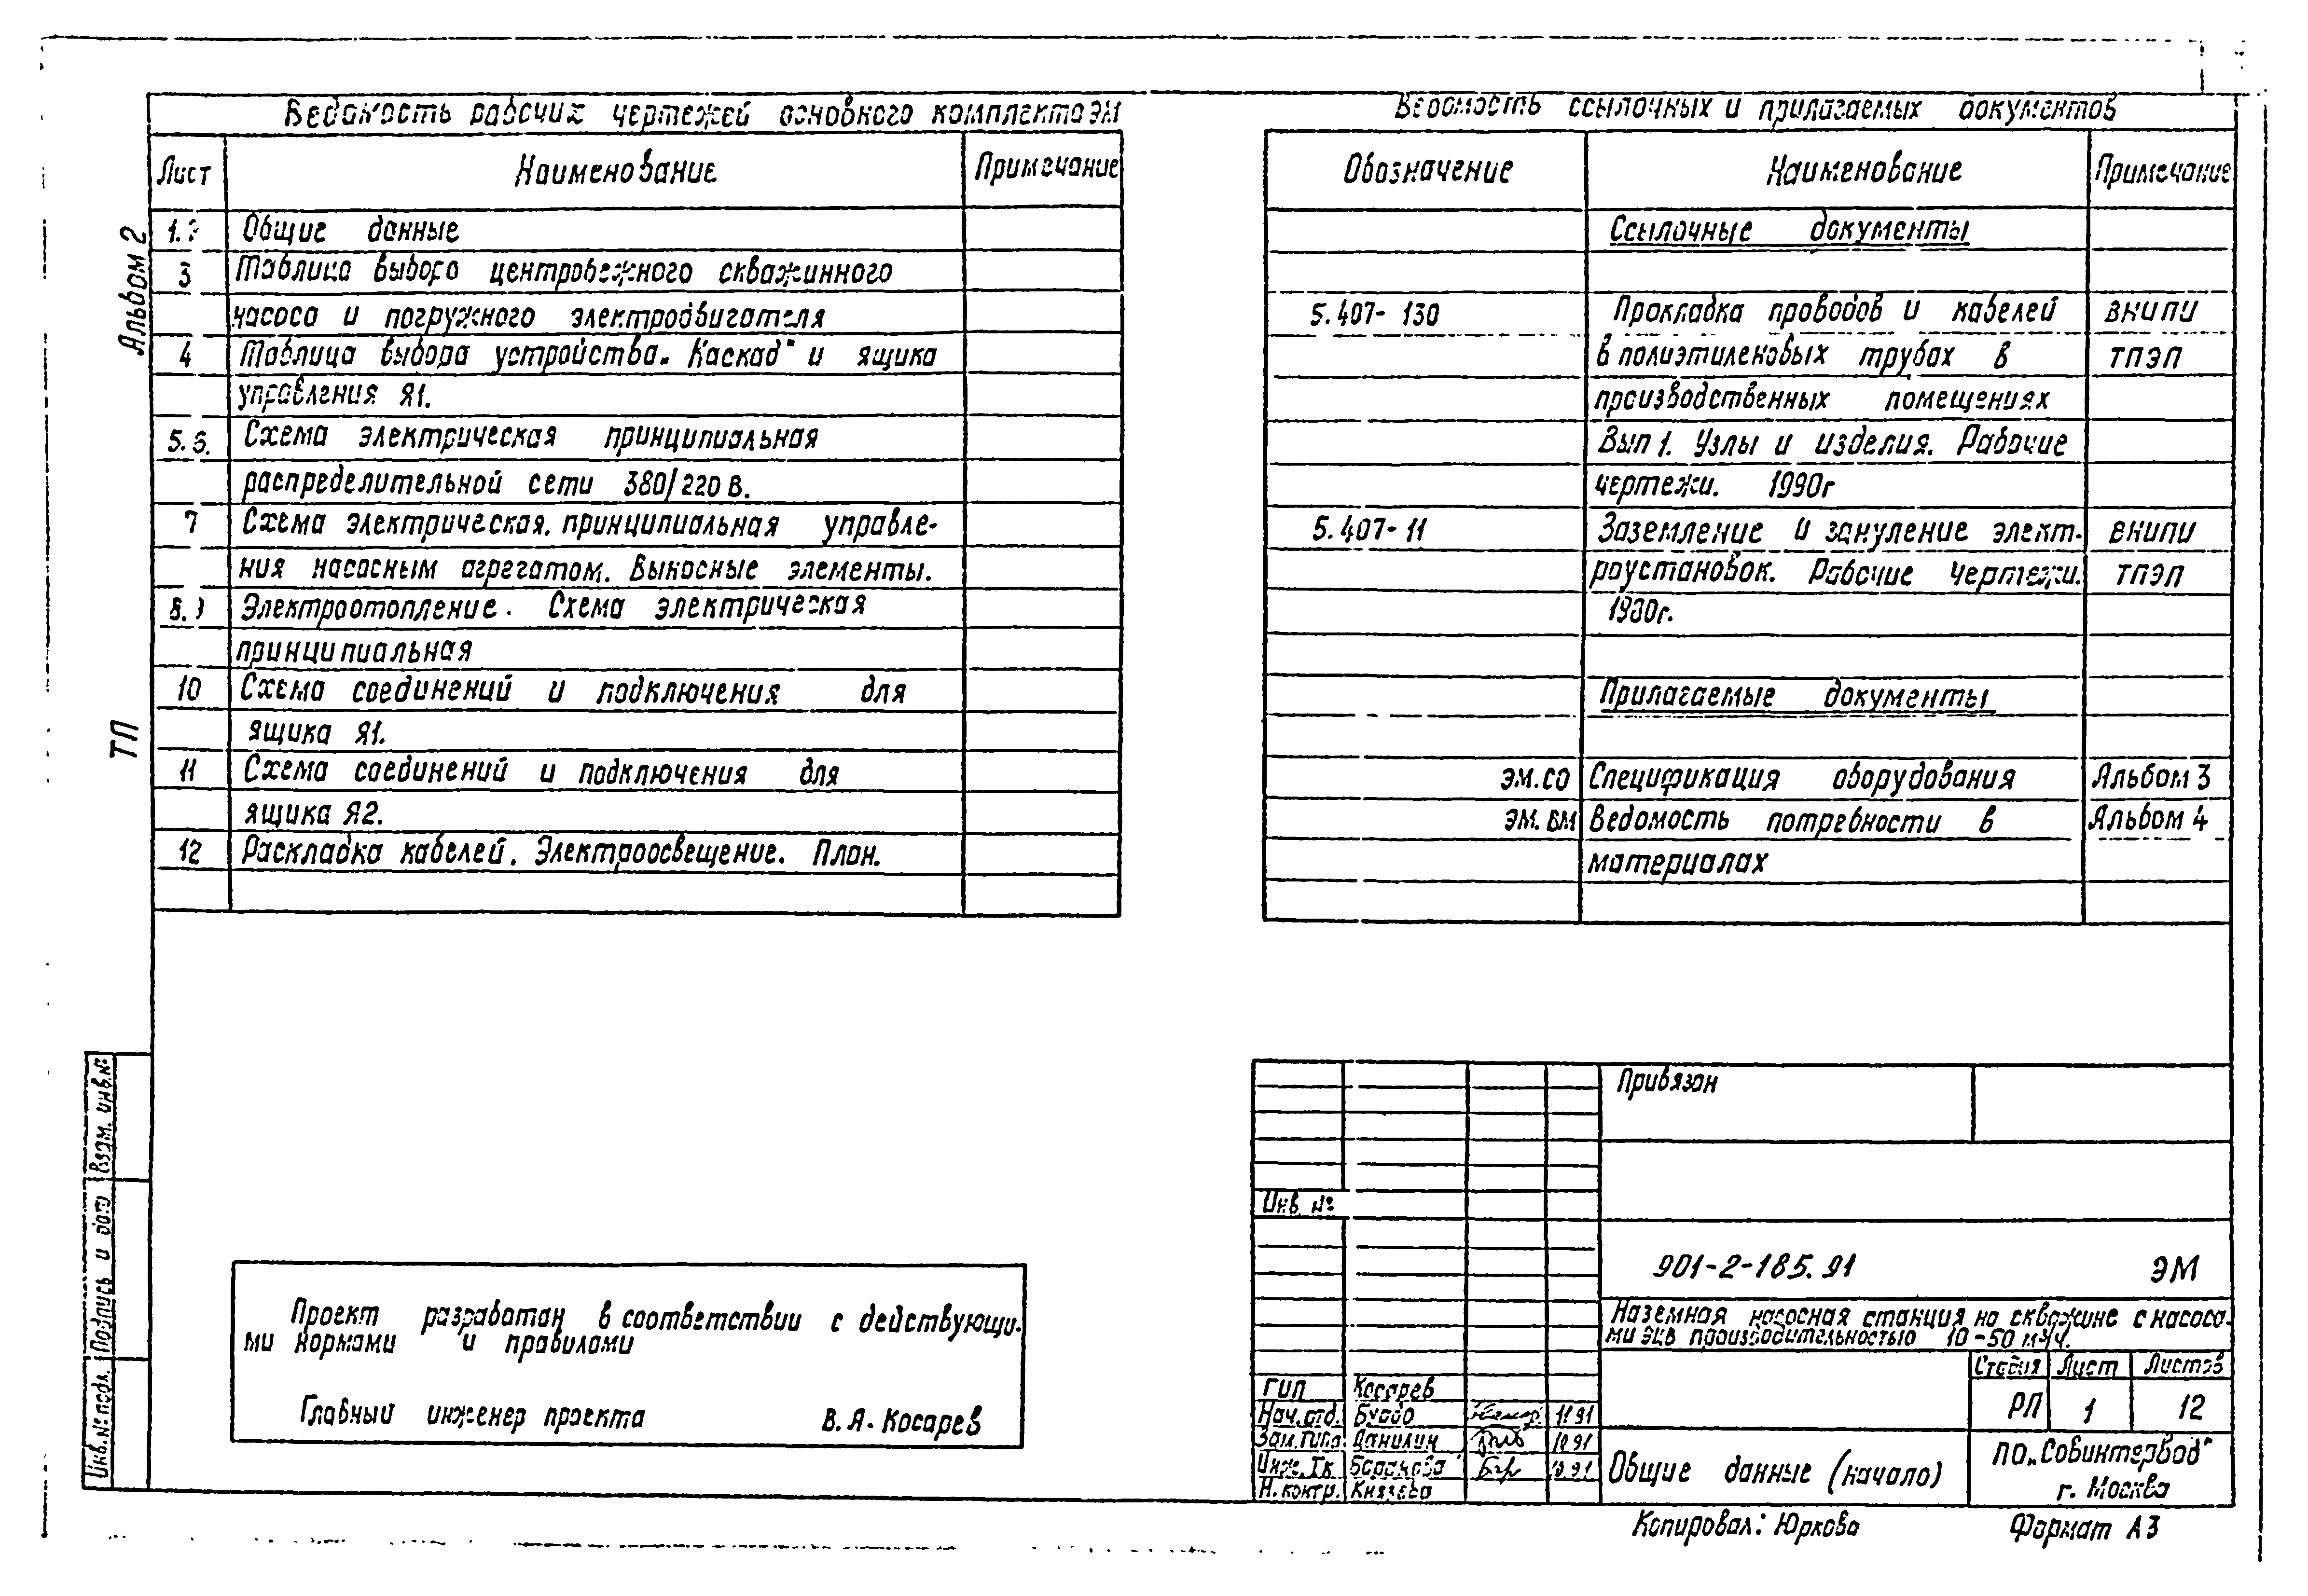 Ведомость рабочих чертежей основного комплекта ЭМ
Лист Наименование Примечание
1.2 Общие данные
3 Таблица выбора центробежного скважинного
насоса и погружного электродвигателя
4 Таблица выбора устройства „Каскад" и ящика
управления Я1.
5.6. Схема электрическая принципиальная
распределительной сети 380/220 В.
7 Схема электрическая принципиальная управле-
ния насосным агрегатом. Выносные элементы.
8.9 Электроотопление. Схема электрическая
принципиальная
10 Схема соединений и подключения для
ящика Я1.
11 Схема соединений и подключения для
ящика Я2.
12 Раскладка кабелей. Электроосвещение. План.
Ведомость ссылочных и прилагаемых документов
Обозначение Наименование Примечание
Ссылочные документы
5.407-130 Прокладка проводов и кабелей ВНИПИ
в полиэтиленовых трубах в ТПЭП
производственных помещениях
Вып 1. Узлы и изделия. Рабочие
чертежи. 1990г
5.407-11 Заземление и зануление элект- ВНИПИ
роустановок. Рабочие чертежи. ТПЭП
Прилагаемые документы
ЭМ.СО Спецификация оборудования Альбом 3
ЭМ.ВМ Ведомость потребности в Альбом 4
материалах
Альбом 2
ТП
Взам. инв.№
Подпись и дата
Инв.№ подл.
Проект разработан в соответствии с действующи-
ми нормами и правилами
Главный инженер проекта В.Я. Косарев
Привязан
Инв. №
901-2-185.91 ЭМ
Наземная насосная станция на скважине с насоса-
ми ЭЦВ производительностью 10-50 м³/ч.
Стадия Лист Листов
РП 1 12
ГИП Косарев
Нач. отд. 11.91
Зам. гипа Данилин 10.91
Инж. Iк Баранова 10.91
Н. контр. Князева
Общие данные (начало)
ПО „Совинтервод"
г. Москва
Копировал: Юркова Формат А3